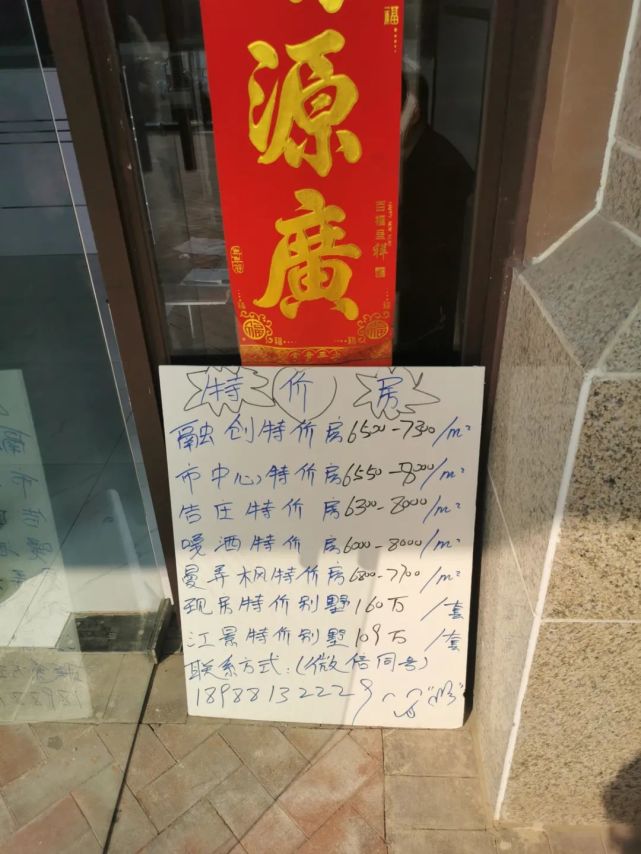 源
廣
福
福
特价房
融创特价房6500-7300/m²
市中心特价房6550-8000/m²
告庄特价房6300-8000/m²
嘎洒特价房6000-8000/m²
曼弄枫特价房6800-7700/m²
现房特价别墅160万/套
江景特价别墅109万/套
联系方式:(微信同号)
18988132229